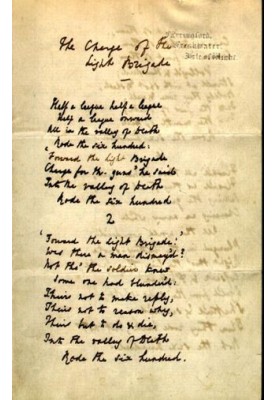 The Charge of the
Light Brigade
Farringford,
Freshwater,
Isle of Wight.
Half a league half a league
Half a league onward
All in the valley of Death
Rode the six hundred:
'Forward the Light Brigade
Charge for the guns' he said
Into the valley of Death
Rode the six hundred
2
'Forward the Light Brigade!'
Was there a man dismay'd?
Not tho' the soldier knew
Some one had blunder'd:
Theirs not to make reply,
Theirs not to reason why,
Theirs but to do & die,
Into the valley of Death
Rode the six hundred.